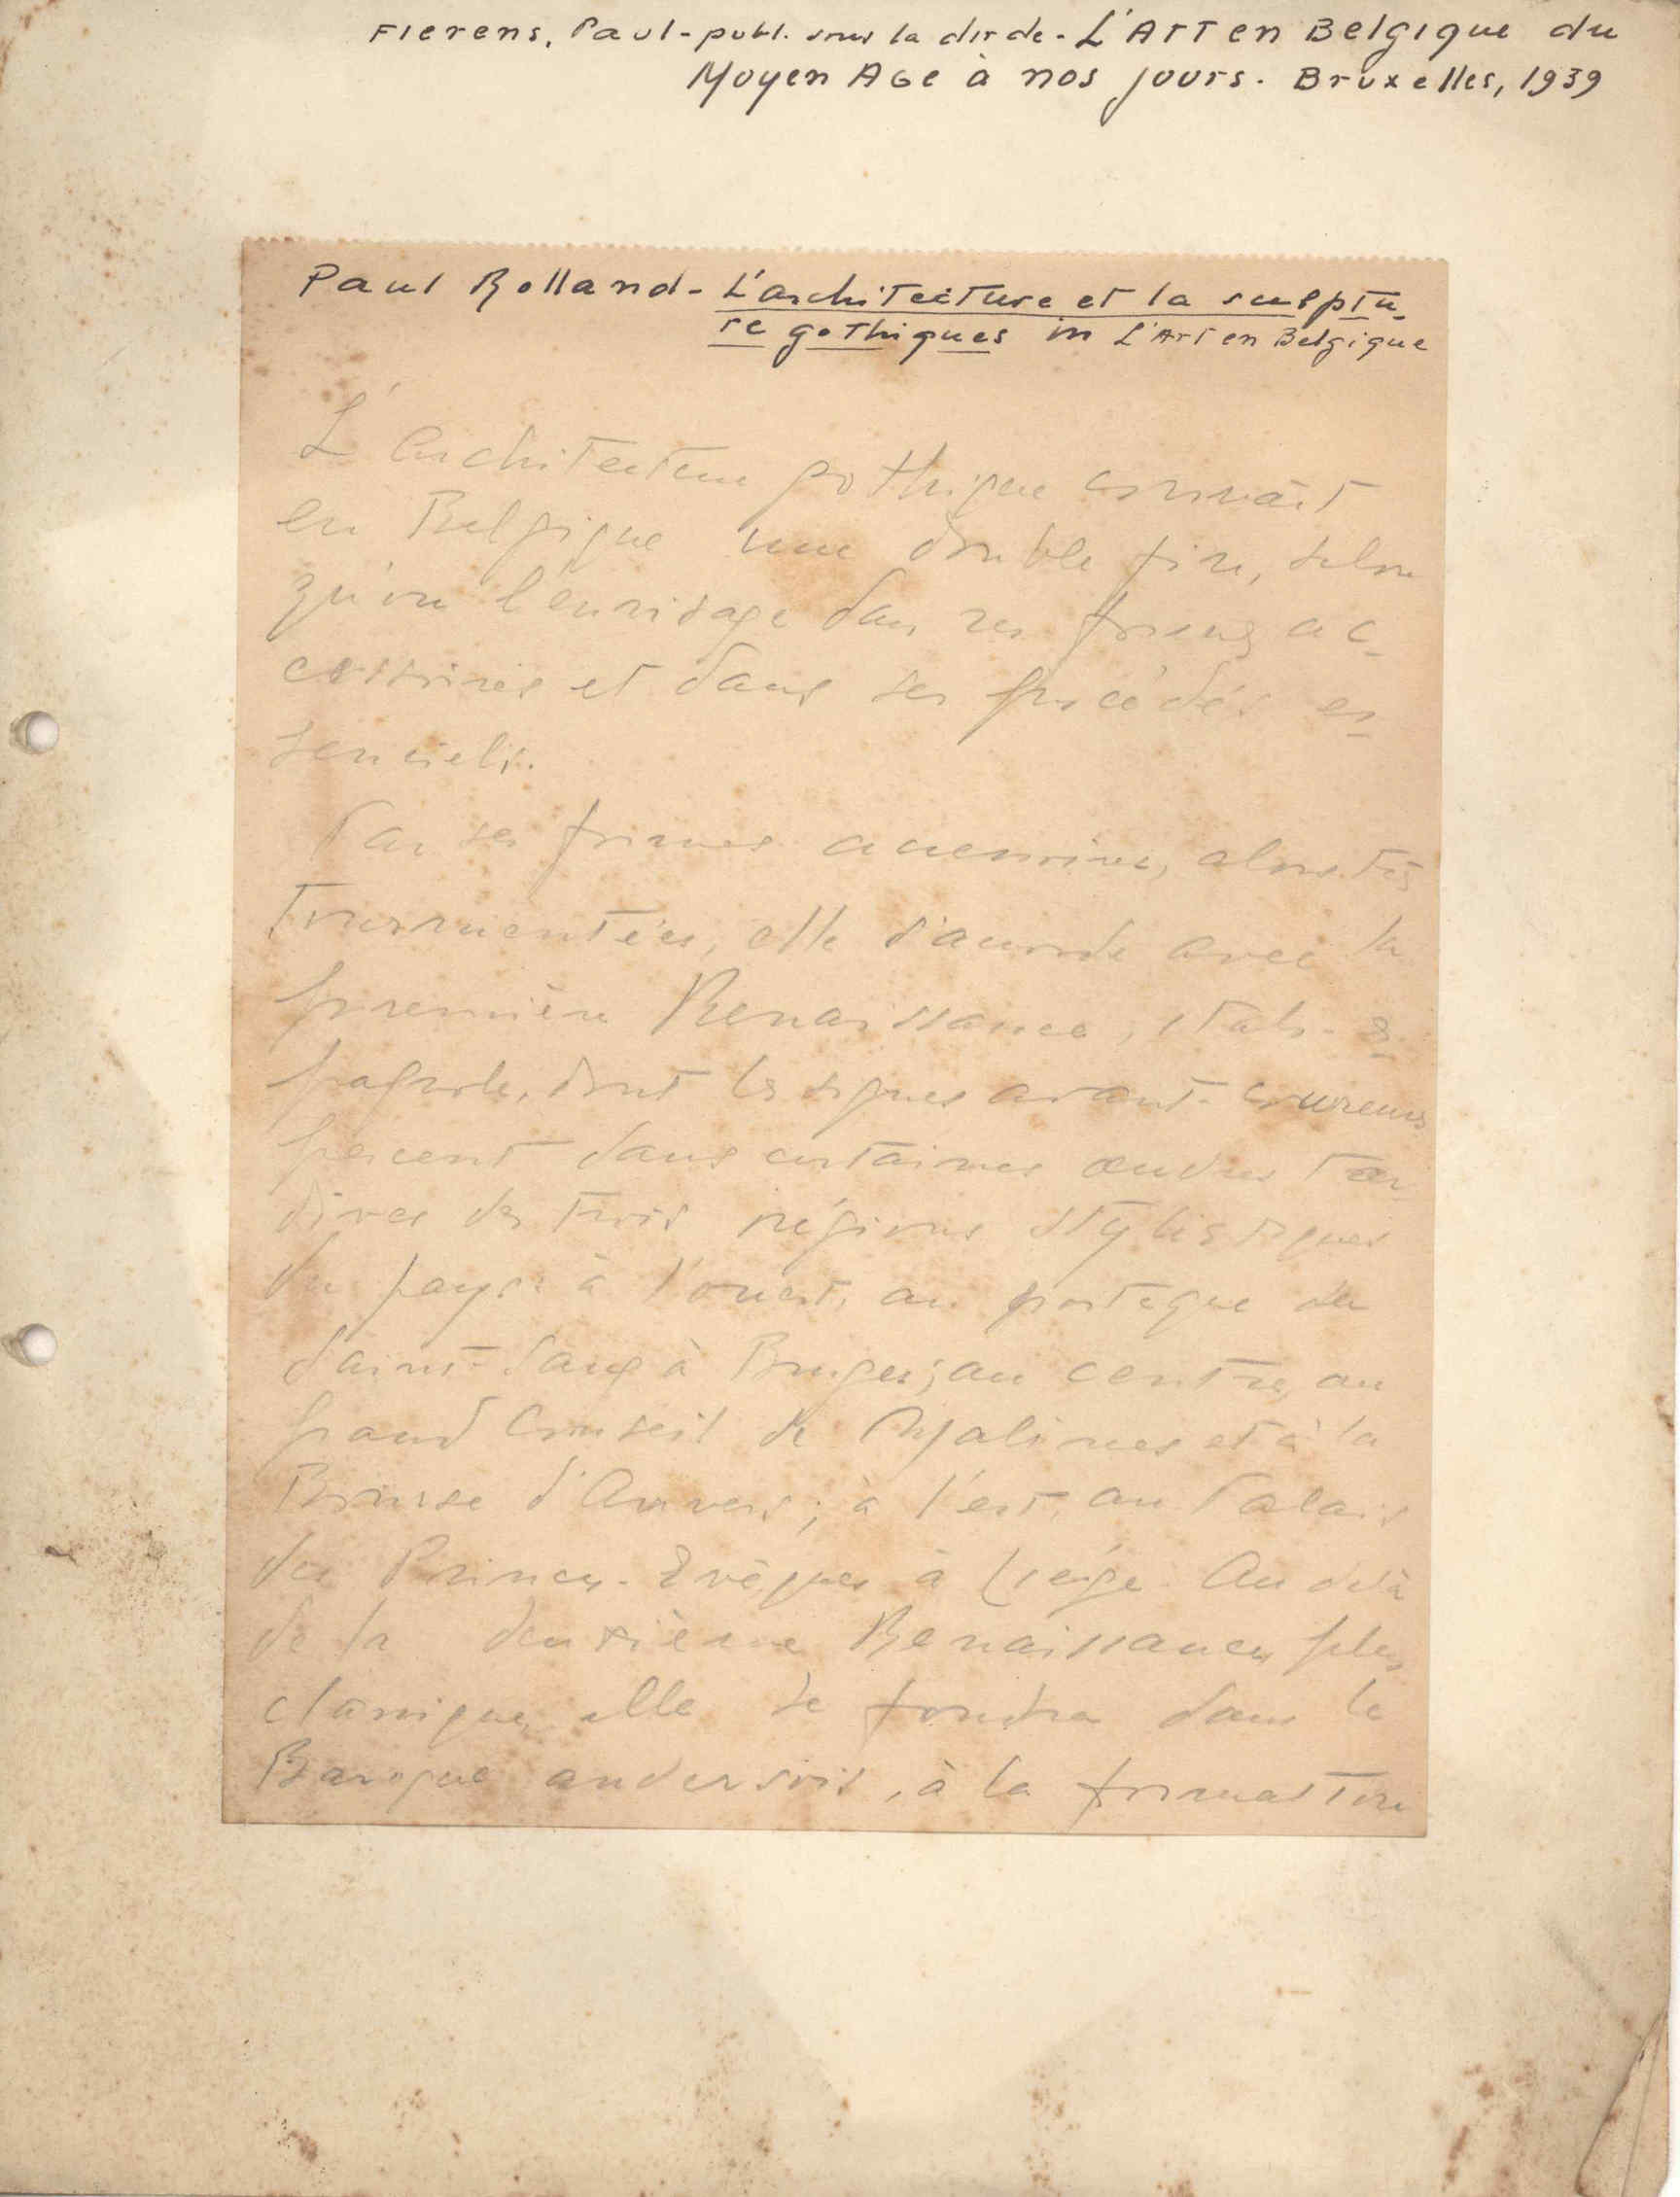 Fierens, Paul - publ. sous la dir de - L'Art en Belgique du
Moyen Age à nos jours. Bruxelles, 1939
Paul Rolland - L'architecture et la sculptu-
re gothiques in L'Art en Belgique
L'architecture gothique connaît
en Belgique une double fin, selon
qu'on l'envisage dans ses formes ac-
cessoires et dans ses procédés es-
senciels.
Par ses formes accessoires, alors très
tourmentées, elle s'accorde avec la
première Renaissance, italo-es-
pagnole, dont les signes avant-coureurs
percent dans certaines œuvres tar-
dives des trois régions stylistiques
du pays: à l'ouest, au portique du
Saint-Sang à Bruges; au centre, au
grand Conseil de Malines et à la
Bourse d'Anvers; à l'est, au Palais
des Princes-Evêques à Liége. Au delà
de la deuxième Renaissance, plus
classique, elle se fondra dans le
Baroque anversois, à la formation